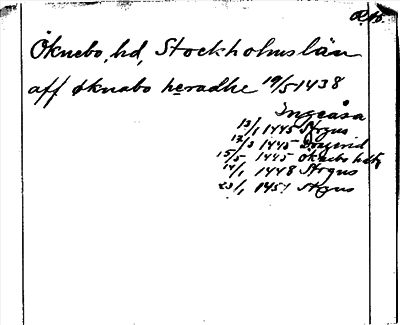 Öknebo, hd, Stockholms län
aff øknabo heradhe 19/5 1438
Ingeåsa
13/1 1445 Strgus
12/3 1445
15/5 1445 Öknebo hdtg
14/1 1448 Strgus
23/1 1451 Strgus